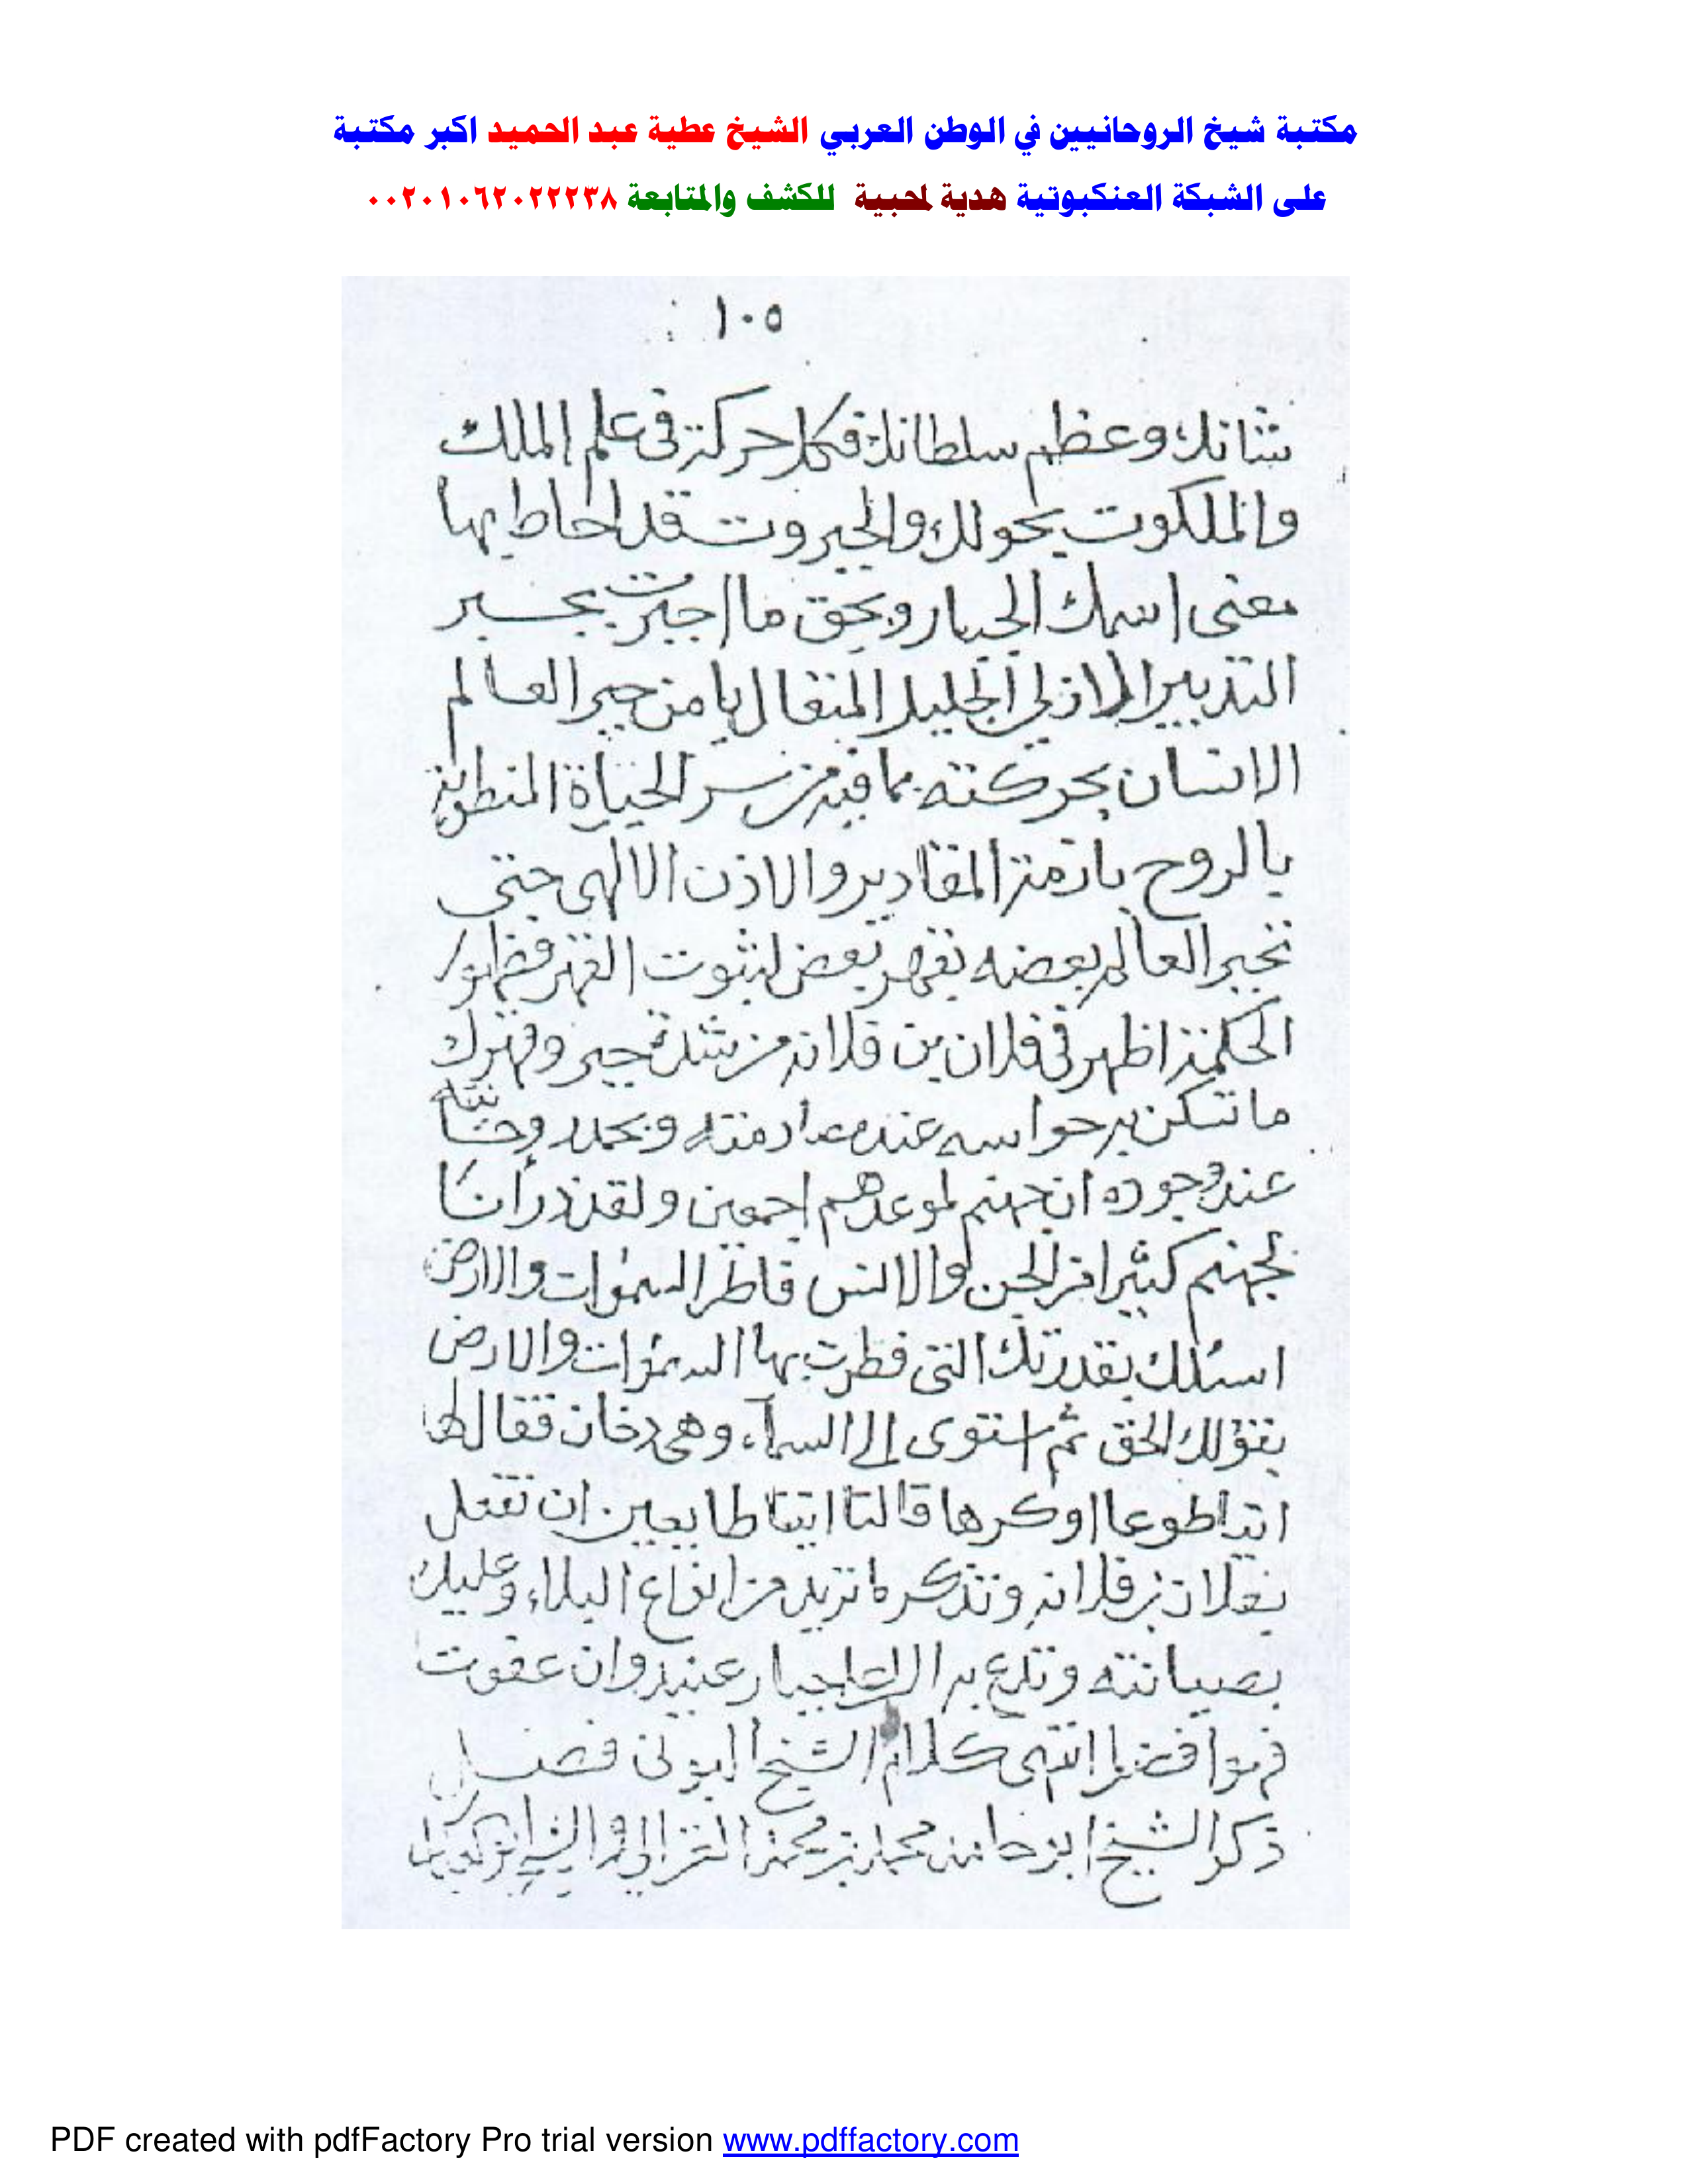 مكتبة شيخ الروحانيين في الوطن العربي الشيخ عطية عبد الحميد اكبر مكتبة
على الشبكة العنكبوتية هدية لمحبية للكشف والمتابعة ٠٠٢٠١٠٦٢٠٢٢٢٣٨
١٠٥
شانك وعظم سلطانك فكل حركة في علم الملك
والملكوت بحولك والجبروت قد احاط بها
معنى اسمك الجبار وبحق ما اجبرت بجبر
التدبير الازلي الجليل المتعال يا من جبر العالم
الانسان بحركته بما فيه من سر الحياة المنطوية
بالروح بازمة المقادير والاذن الالهى حتى
تجبر العالم بعضه بقهر بعض لثبوت القهر فظهور
الحكمة اظهر في فلان بن فلانة من شدة جبر وقهرك
ما تسكن به حواسه عند مصادمته وبحمد
عند وجوده ان جهنم لموعدهم اجمعين ولقد ذرأنا
لجهنم كثيرا من الجن والانس فاطر السموات والارض
اسئلك بقدرتك التى فطرت بها السموات والارض
بقولك الحق ثم استوى الى السماء وهى دخان فقال لها
اتيا طوعا او كرها قالتا اتينا طايعين ان تفعل
بفلان بن فلانة وتذكر ما تريد من انواع البلاء وعليك
بصيانته وتدع به جبار عنيد وان عفوت
فهو افضل انتهى كلام الشيخ البونى فصل
ذكر الشيخ ابو حامد محمد بن محمد الغزالى
PDF created with pdfFactory Pro trial version www.pdffactory.com